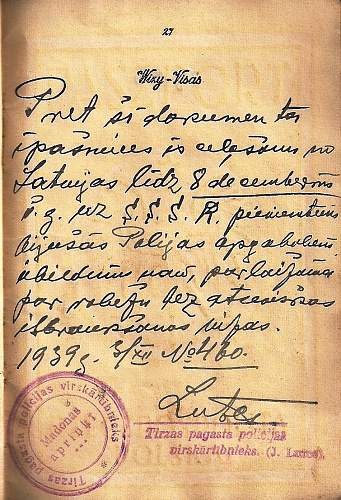 27
Wizy-Visas
Pret šī dokumenta
īpašnieces izceļošanu no
Latvijas līdz 8 decembrim
š.g. uz S.S.S.R. pievienotiem
bijušās Polijas apgabaliem
iebildumu nav, parlaižama
par robežu bez atsevišķas
izbraukšanas vīzas.
1939g. 3/XII No 460.
Tirzas pagasta policijas virskārtībnieks
Madonas apriņķī
Tirzas pagasta policijas
virskārtībnieks. (J. Lutces).